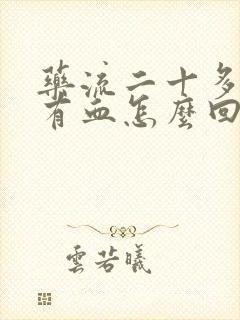 藥流二十多
有血怎麼回
雲若曦